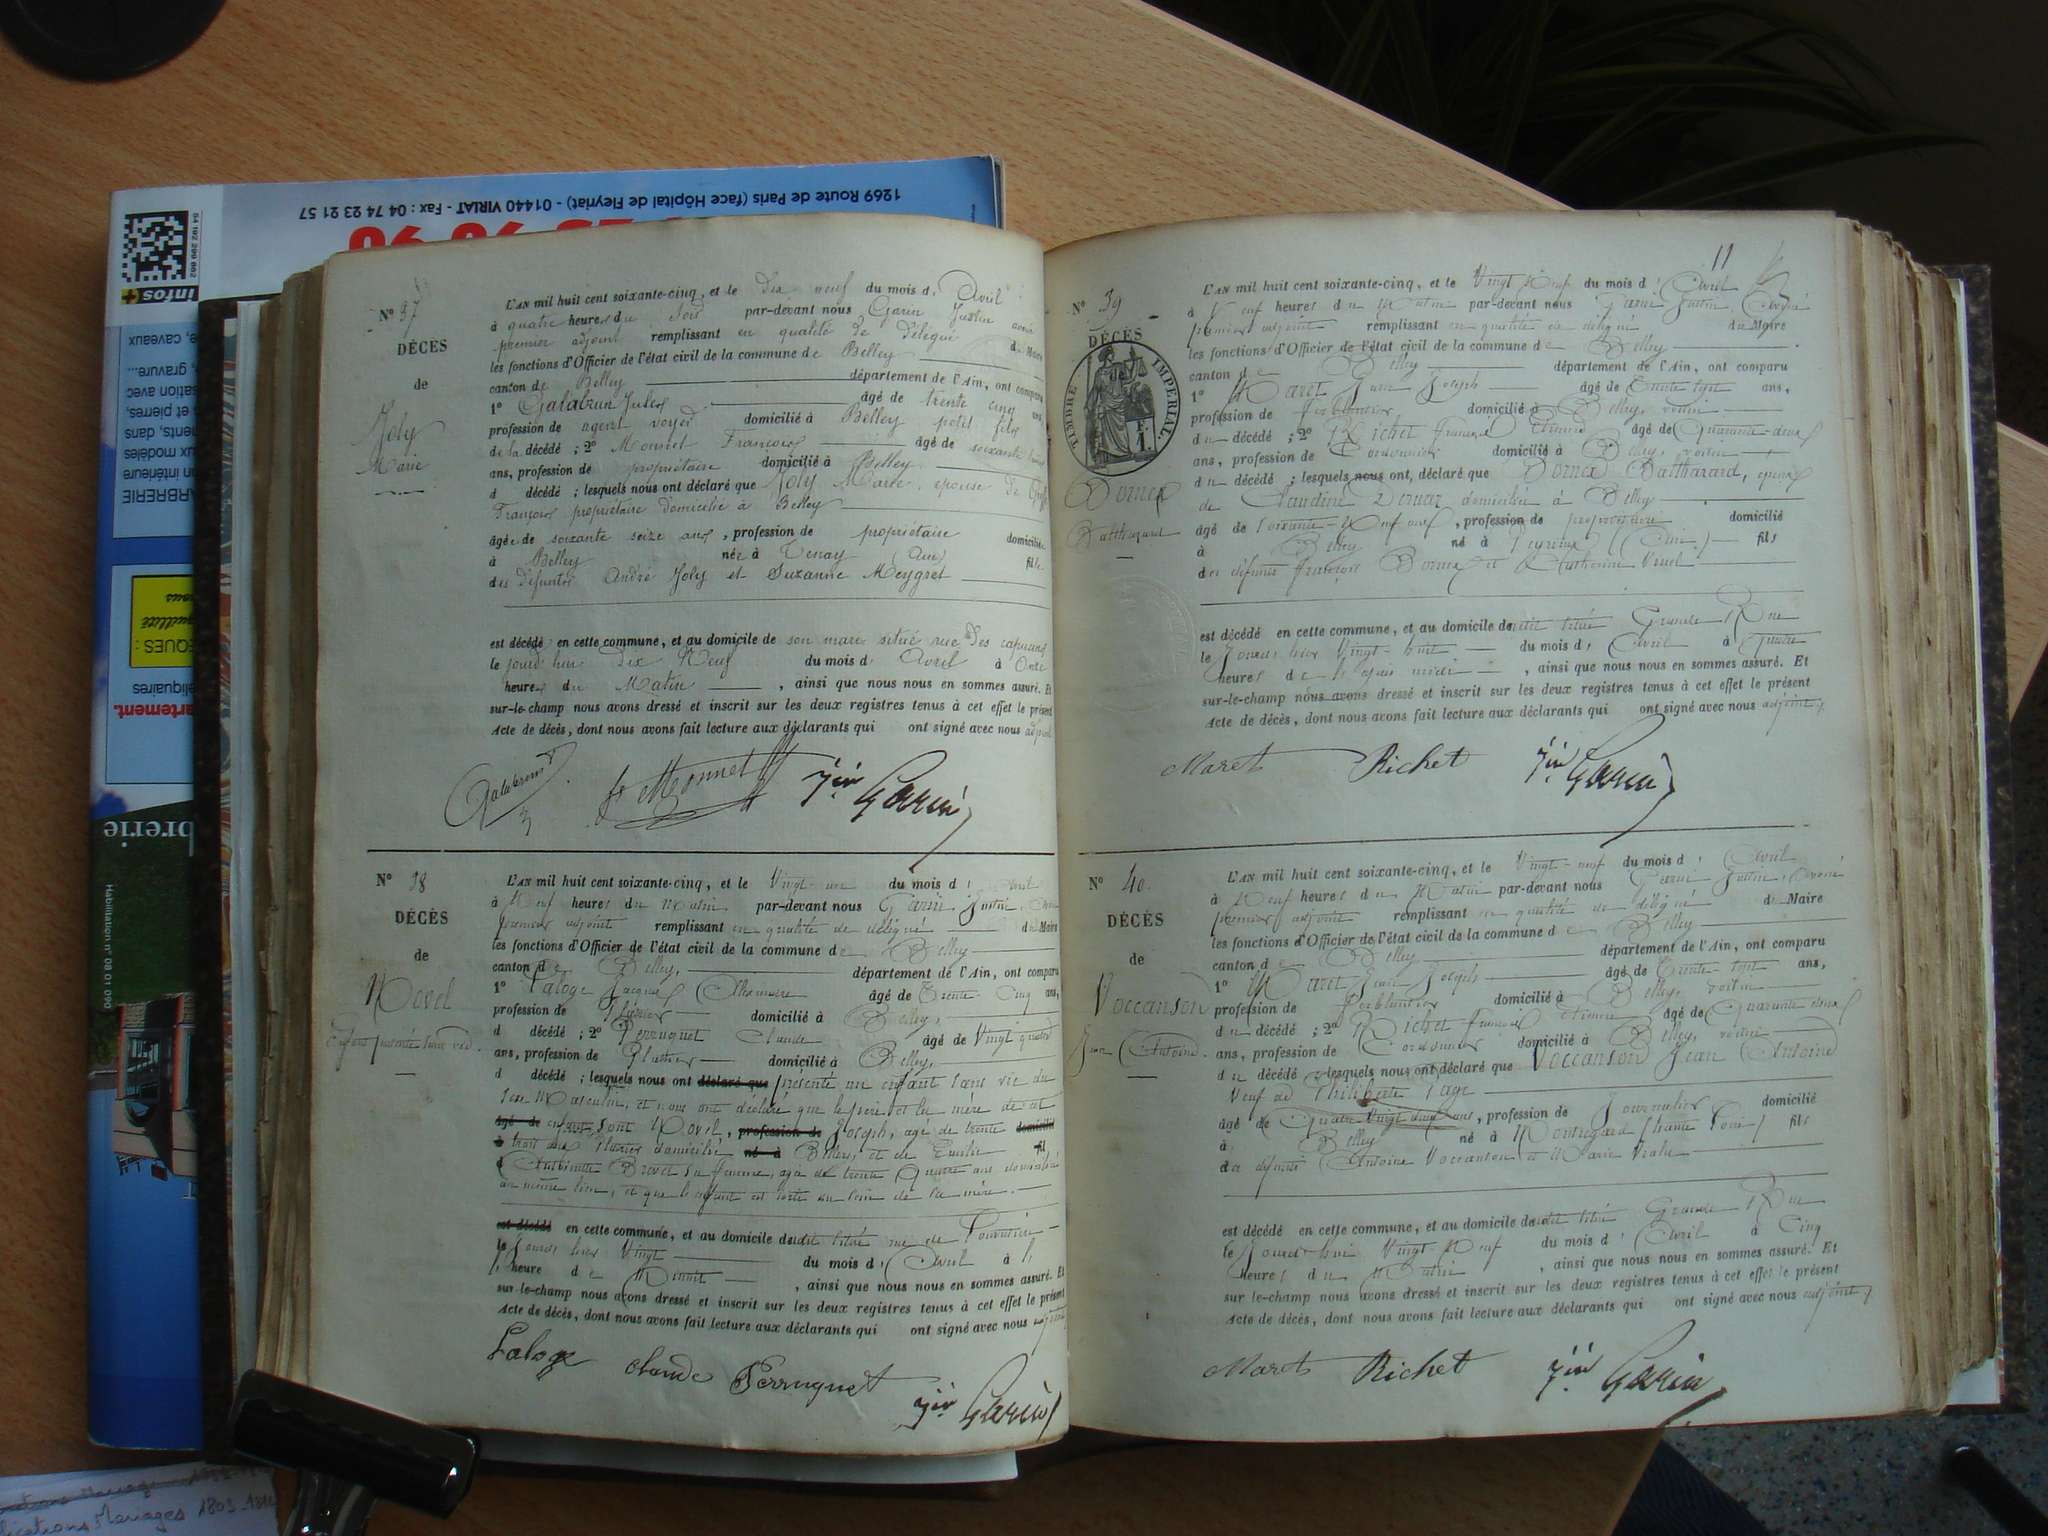 1269 Route de Paris (face Hôpital de Fleyriat) - 01440 VIRIAT - Fax : 04 74 23 21 57
infos
Habilitation n° 08 01 090
N° 37
DÉCÈS
de
Joly
Marie
L'AN mil huit cent soixante-cinq, et le dix neuf du mois d' Avril
à quatre heures du soir par-devant nous Garin Justin
premier adjoint remplissant en qualité de délégué du Maire
les fonctions d'Officier de l'état civil de la commune de Belley
canton de Belley département de l'Ain, ont comparu
1° Galabrun Jules âgé de trente cinq ans
profession de agent voyer domicilié à Belley petit fils
de la décédé ; 2° Monnet François âgé de soixante
ans, profession de propriétaire domicilié à Belley
d décédé ; lesquels nous ont déclaré que Joly Marie, épouse de
François propriétaire domicilié à Belley
âgée de soixante seize ans, profession de propriétaire domiciliée
à Belley née à Tenay (Ain) fille
des défunts André Joly et Suzanne Meygret
est décédé en cette commune, et au domicile de son mari situé rue des capucins
le jourd'hui dix Neuf du mois d' Avril à Onze
heures du Matin , ainsi que nous nous en sommes assuré. Et
sur-le-champ nous avons dressé et inscrit sur les deux registres tenus à cet effet le présent
Acte de décès, dont nous avons fait lecture aux déclarants qui ont signé avec nous adjoint
Galabrun fs Monnet Jin Garin
N° 38
DÉCÈS
de
Novel
Enfant présenté sans vie
L'AN mil huit cent soixante-cinq, et le Vingt-un du mois d' Avril
à Neuf heures du Matin par-devant nous Garin Justin
premier adjoint remplissant en qualité de délégué du Maire
les fonctions d'Officier de l'état civil de la commune de Belley
canton de Belley, département de l'Ain, ont comparu
1° Laloge Jacques âgé de Trente-Cinq ans,
profession de Plâtrier domicilié à Belley,
d décédé ; 2° Perruquet Claude âgé de Vingt quatre
ans, profession de Plâtrier domicilié à Belley,
d décédé ; lesquels nous ont déclaré que présenté un enfant sans vie du
sexe Masculin, et nous ont déclaré que le père et la mère de cet
âgé de enfant sont Novel, profession de Joseph, âgé de trente domicilié
à trois ans Plâtrier domicilié né à Belley, et de Emilie fil
d Antoinette Brevet sa femme, âgée de trente Quatre ans domiciliée
au même lieu, et que l'enfant est sorti du sein de la mère.
est décédé en cette commune, et au domicile dudit situé rue de
le Jourd'hui Vingt du mois d' Avril à
heure de Minuit , ainsi que nous nous en sommes assuré. Et
sur-le-champ nous avons dressé et inscrit sur les deux registres tenus à cet effet le présent
Acte de décès, dont nous avons fait lecture aux déclarants qui ont signé avec nous adjoint
Laloge Claude Perruquet Jin Garin
11
N° 39
DÉCÈS
TIMBRE IMPÉRIAL
Dornex
Balthazard
L'AN mil huit cent soixante-cinq, et le Vingt Neuf du mois d' Avril
à Neuf heures du Matin par-devant nous Garin Justin, Avoué
premier adjoint remplissant en qualité de délégué du Maire
les fonctions d'Officier de l'état civil de la commune de Belley
canton de Belley département de l'Ain, ont comparu
1° Maret Jean Joseph âgé de Trente sept ans,
profession de Ferblantier domicilié à Belley, voisin
du décédé ; 2° Richet François Etienne âgé de Quarante-deux
ans, profession de Cordonnier domicilié à Belley, voisin
du décédé ; lesquels nous ont déclaré que Dornex Balthazard, époux
de Claudine Dornex domicilié à Belley
âgé de soixante-Neuf ans, profession de propriétaire domicilié
à Belley né à Peyrieux (Ain) fils
des défunts François Dornex et
est décédé en cette commune, et au domicile dudit situé Grande Rue
le Jourd'hui Vingt-huit du mois d' Avril à Quatre
heures de , ainsi que nous nous en sommes assuré. Et
sur-le-champ nous avons dressé et inscrit sur les deux registres tenus à cet effet le présent
Acte de décès, dont nous avons fait lecture aux déclarants qui ont signé avec nous adjoint
Maret Richet Jin Garin
N° 40
DÉCÈS
de
Voccanson
Jean Antoine
L'AN mil huit cent soixante-cinq, et le Vingt-neuf du mois d' Avril
à Neuf heures du Matin par-devant nous Garin Justin, Avoué
premier adjoint remplissant en qualité de délégué du Maire
les fonctions d'Officier de l'état civil de la commune de Belley
canton de Belley département de l'Ain, ont comparu
1° Maret Jean Joseph âgé de Trente-sept ans,
profession de Ferblantier domicilié à Belley, voisin
du décédé ; 2° Richet François Etienne âgé de Quarante deux
ans, profession de Cordonnier domicilié à Belley, voisin
du décédé ; lesquels nous ont déclaré que Voccanson Jean Antoine
Veuf de Philiberte Page
âgé de Quatre Vingt deux ans, profession de Journalier domicilié
à Belley né à Montregard (haute Loire) fils
des défunts Antoine Voccanson et Marie
est décédé en cette commune, et au domicile dudit situé Grande Rue
le Jourd'hui Vingt-Neuf du mois d' Avril à Cinq
heures du Matin , ainsi que nous nous en sommes assuré. Et
sur-le-champ nous avons dressé et inscrit sur les deux registres tenus à cet effet le présent
Acte de décès, dont nous avons fait lecture aux déclarants qui ont signé avec nous adjoint
Maret Richet Jin Garin
Mariages 1803